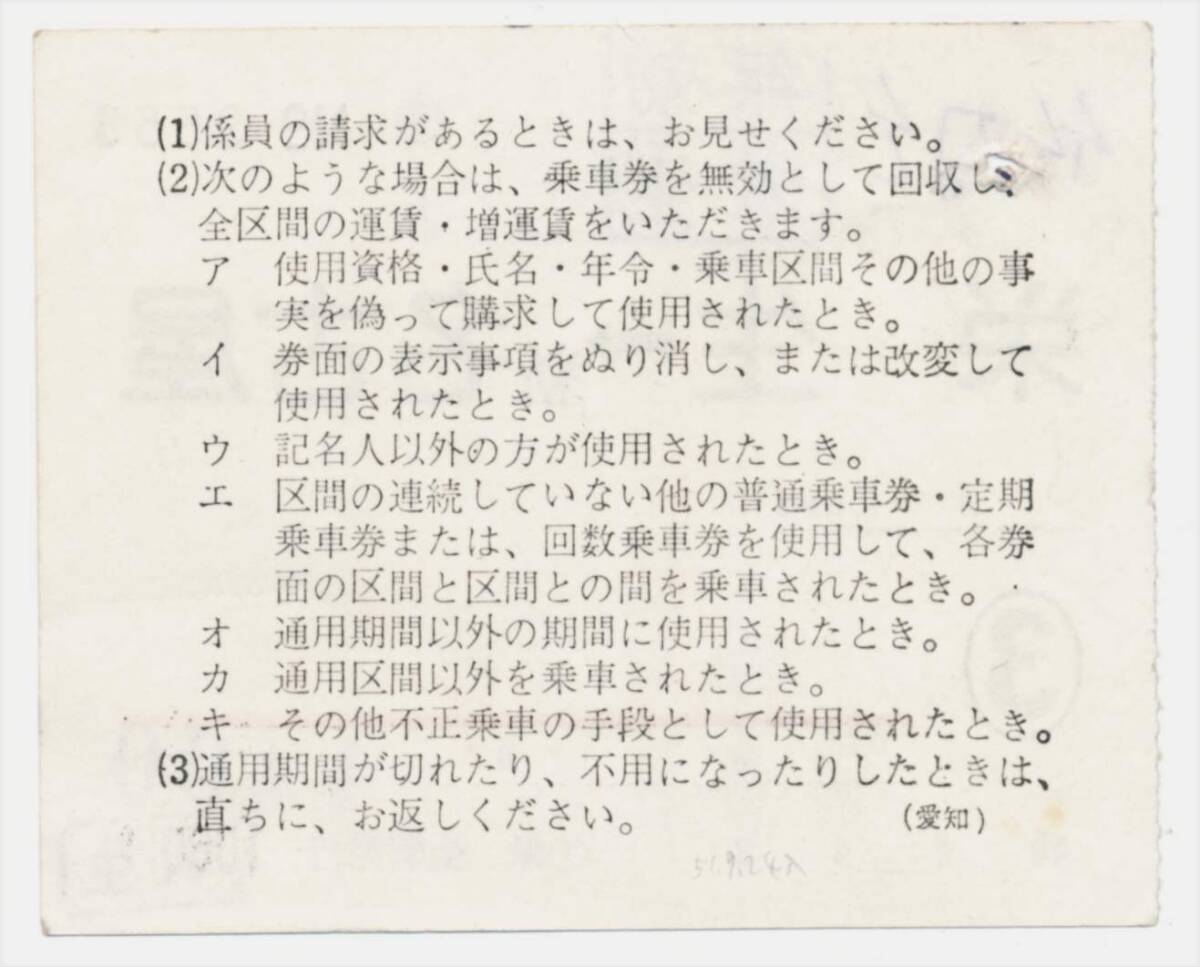 (1)係員の請求があるときは、お見せください。
(2)次のような場合は、乗車券を無効として回収し、
全区間の運賃・増運賃をいただきます。
ア 使用資格・氏名・年令・乗車区間その他の事
実を偽って購求して使用されたとき。
イ 券面の表示事項をぬり消し、または改変して
使用されたとき。
ウ 記名人以外の方が使用されたとき。
エ 区間の連続していない他の普通乗車券・定期
乗車券または、回数乗車券を使用して、各券
面の区間と区間との間を乗車されたとき。
オ 通用期間以外の期間に使用されたとき。
カ 通用区間以外を乗車されたとき。
キ その他不正乗車の手段として使用されたとき。
(3)通用期間が切れたり、不用になったりしたときは、
直ちに、お返しください。 (愛知)
51.9.24入